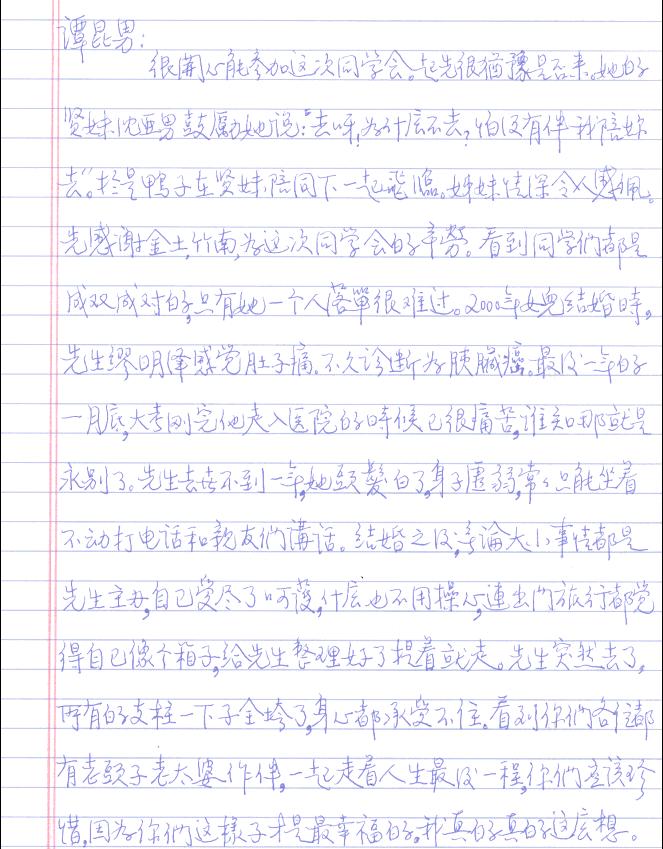 谭昆男：
很開心能参加这次同学会。起先很猶豫是否来。她的
贤妹沈亚男鼓勵她说："去呀，为什庅不去？怕没有伴我陪妳
去"。於是鴨子在贤妹陪同下一起飛臨。姊妹情深令人感佩。
先感謝金土，竹南，为这次同学会的辛勞。看到同学們都是
成双成对的，只有她一个人落單很难过。2000年女兒结婚時，
先生缪明绎感觉肚子痛。不久诊断为胰臟癌。最後一年的
一月底，大考刚完他走入医院的時候已很痛苦，谁知那就是
永别了。先生去世不到一年，她頭髮白了，身子虛弱，常々只能坐着
不动打电话和親友們講话。结婚之後，無論大小事情都是
先生主办，自己受尽了呵護，什庅也不用操心，連出门旅行都觉
得自已像个箱子，给先生整理好了提着就走。先生突然去了，
所有的支柱一下子全垮了，身心都承受不住。看到你們各位都
有老頭子老太婆作伴，一起走着人生最後一程，你們应该珍
惜，因为你們这樣子才是最幸福的，我真的真的这庅想。